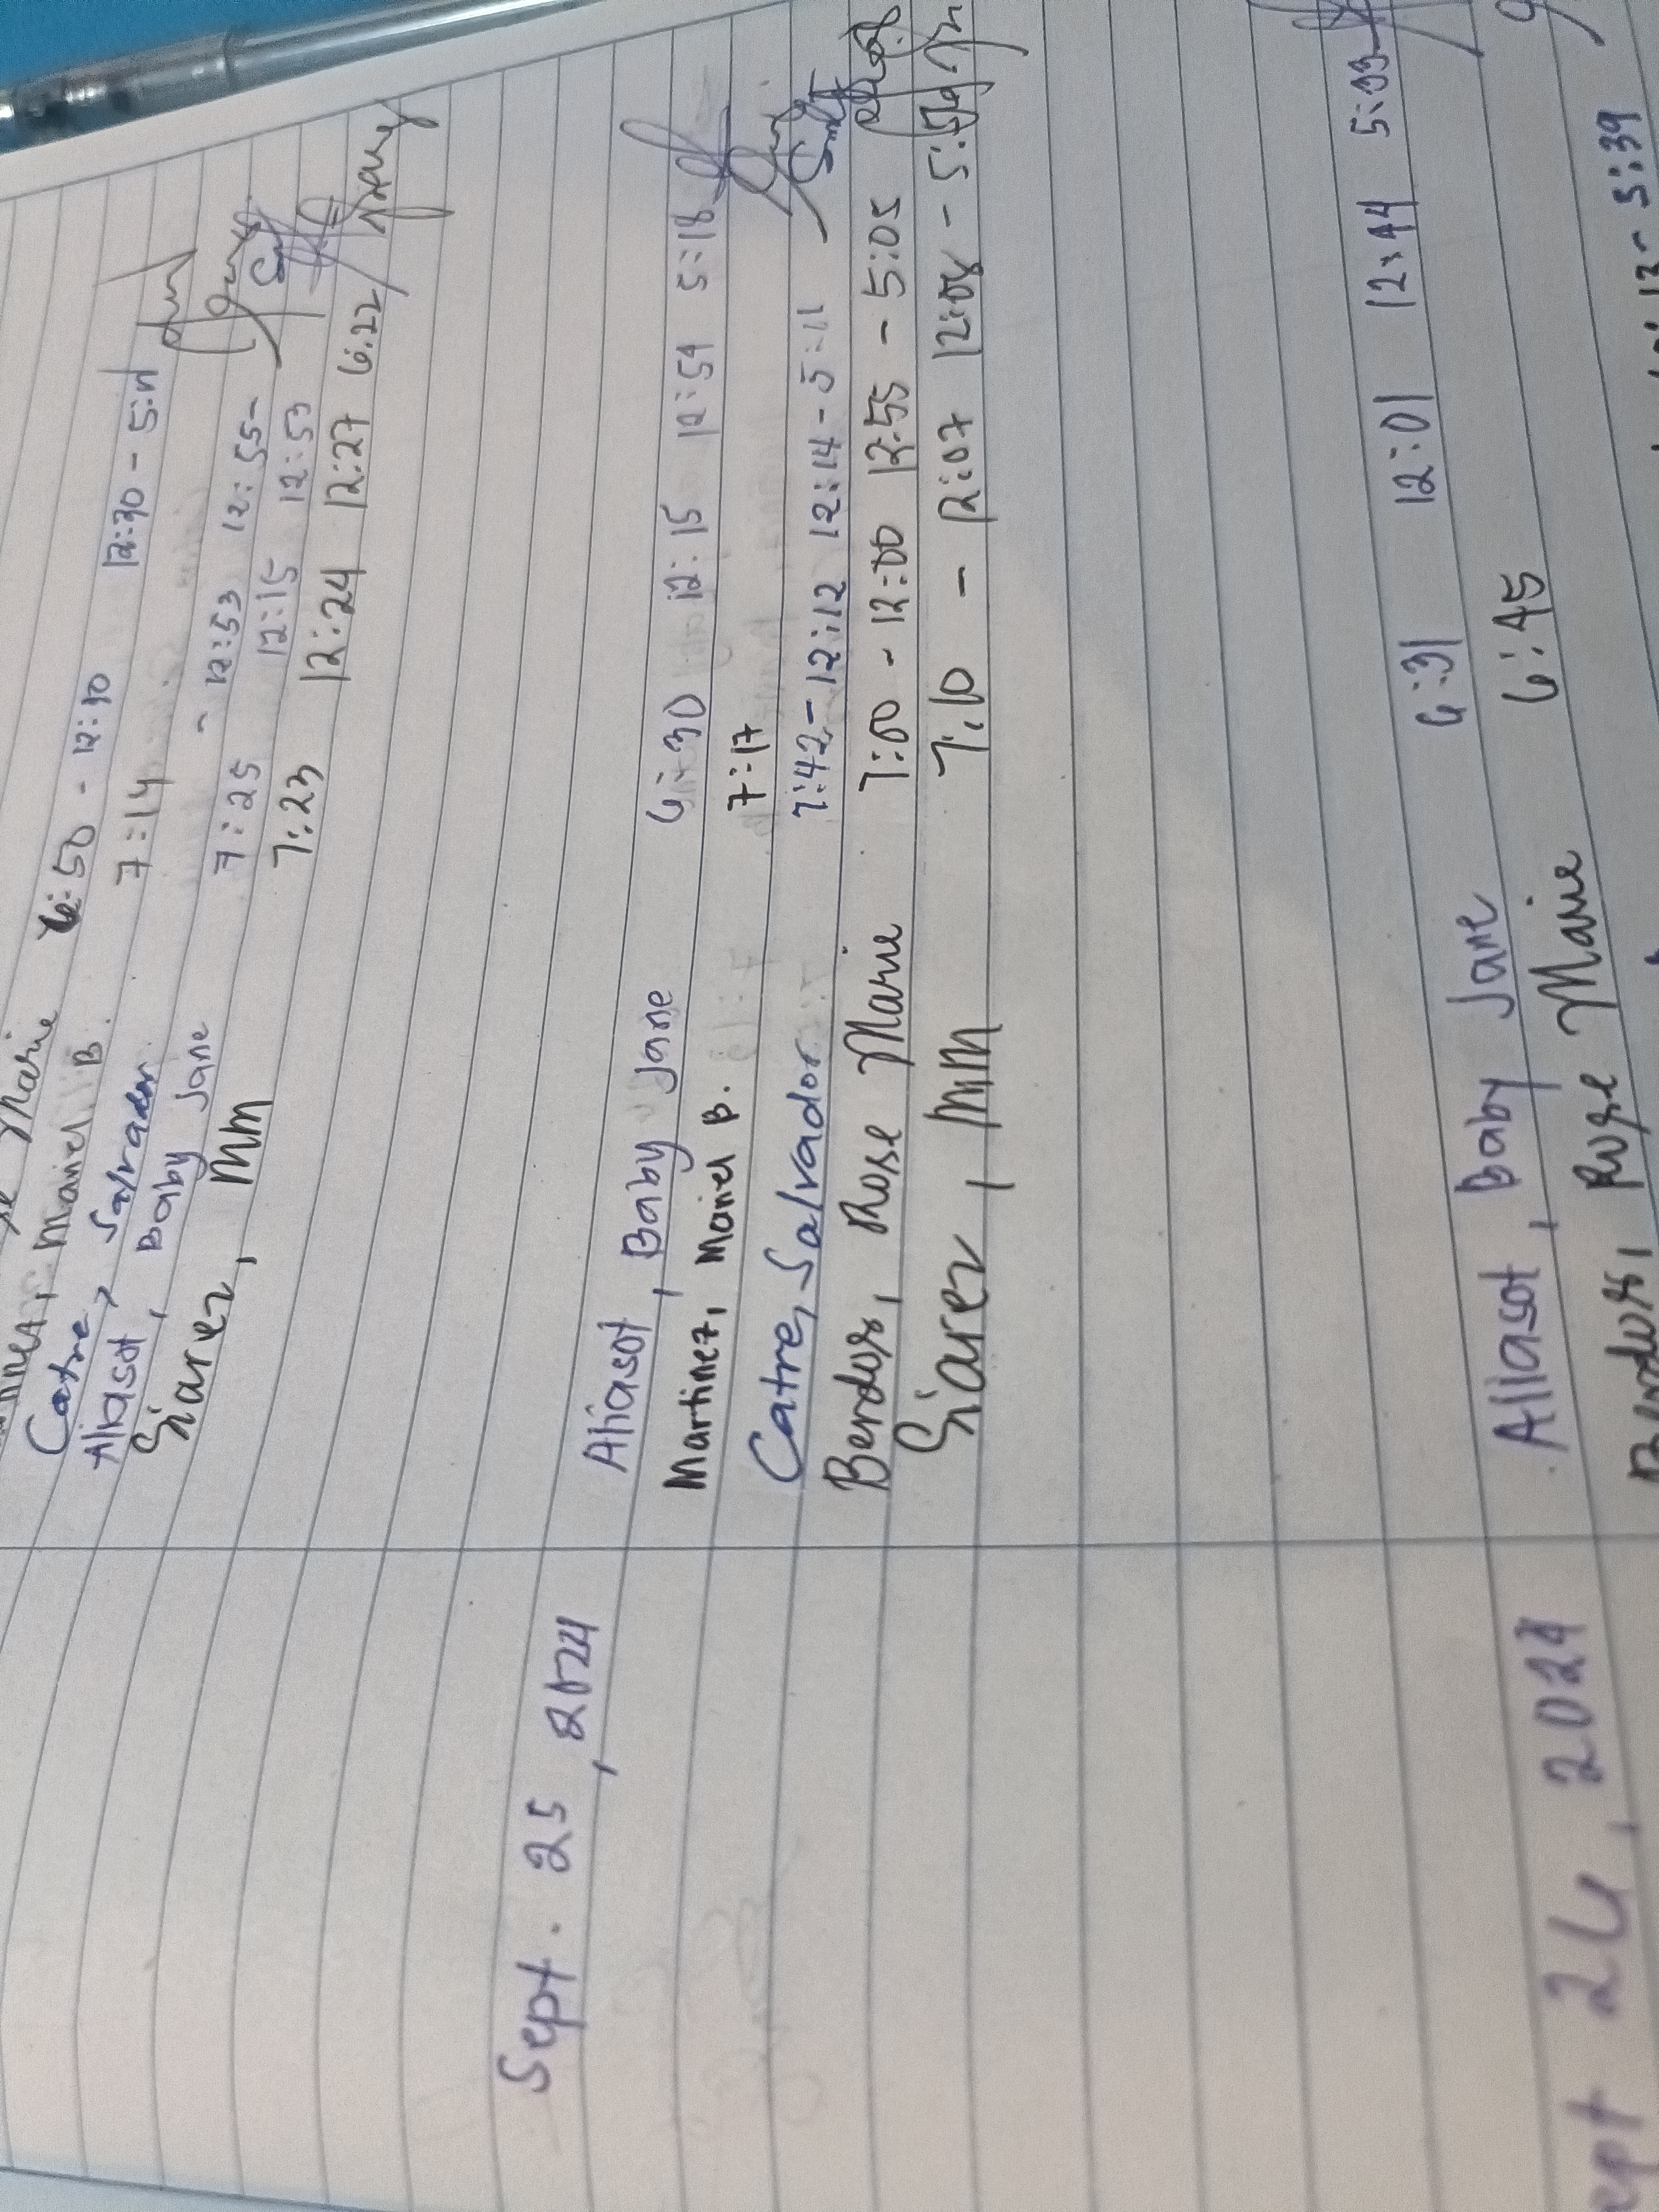 Marie 6:50 - 12:10 12:30 - 5:11
Mariel B. 7:14
Catre, Salvador 7:25 - 12:53 12:55-
Aliasot, Baby Jane 12:15 12:53
Siarez, MM 7:23 12:24 12:27 6:22
Sept. 25, 2024
Aliasot, Baby Jane 6:30 12:15 12:54 5:18
Martinez, Mariel B. 7:17
Catre, Salvador 7:42 - 12:12 12:14 - 5:11
Berdos, Rose Marie 7:00 - 12:00 12:55 - 5:05
Siarez, MM 7:10 - 12:07 12:08 - 5:59
Sept 26, 2024
Aliasot, Baby Jane 6:31 12:01 12:44 5:33
Rose Marie 6:45
5:39